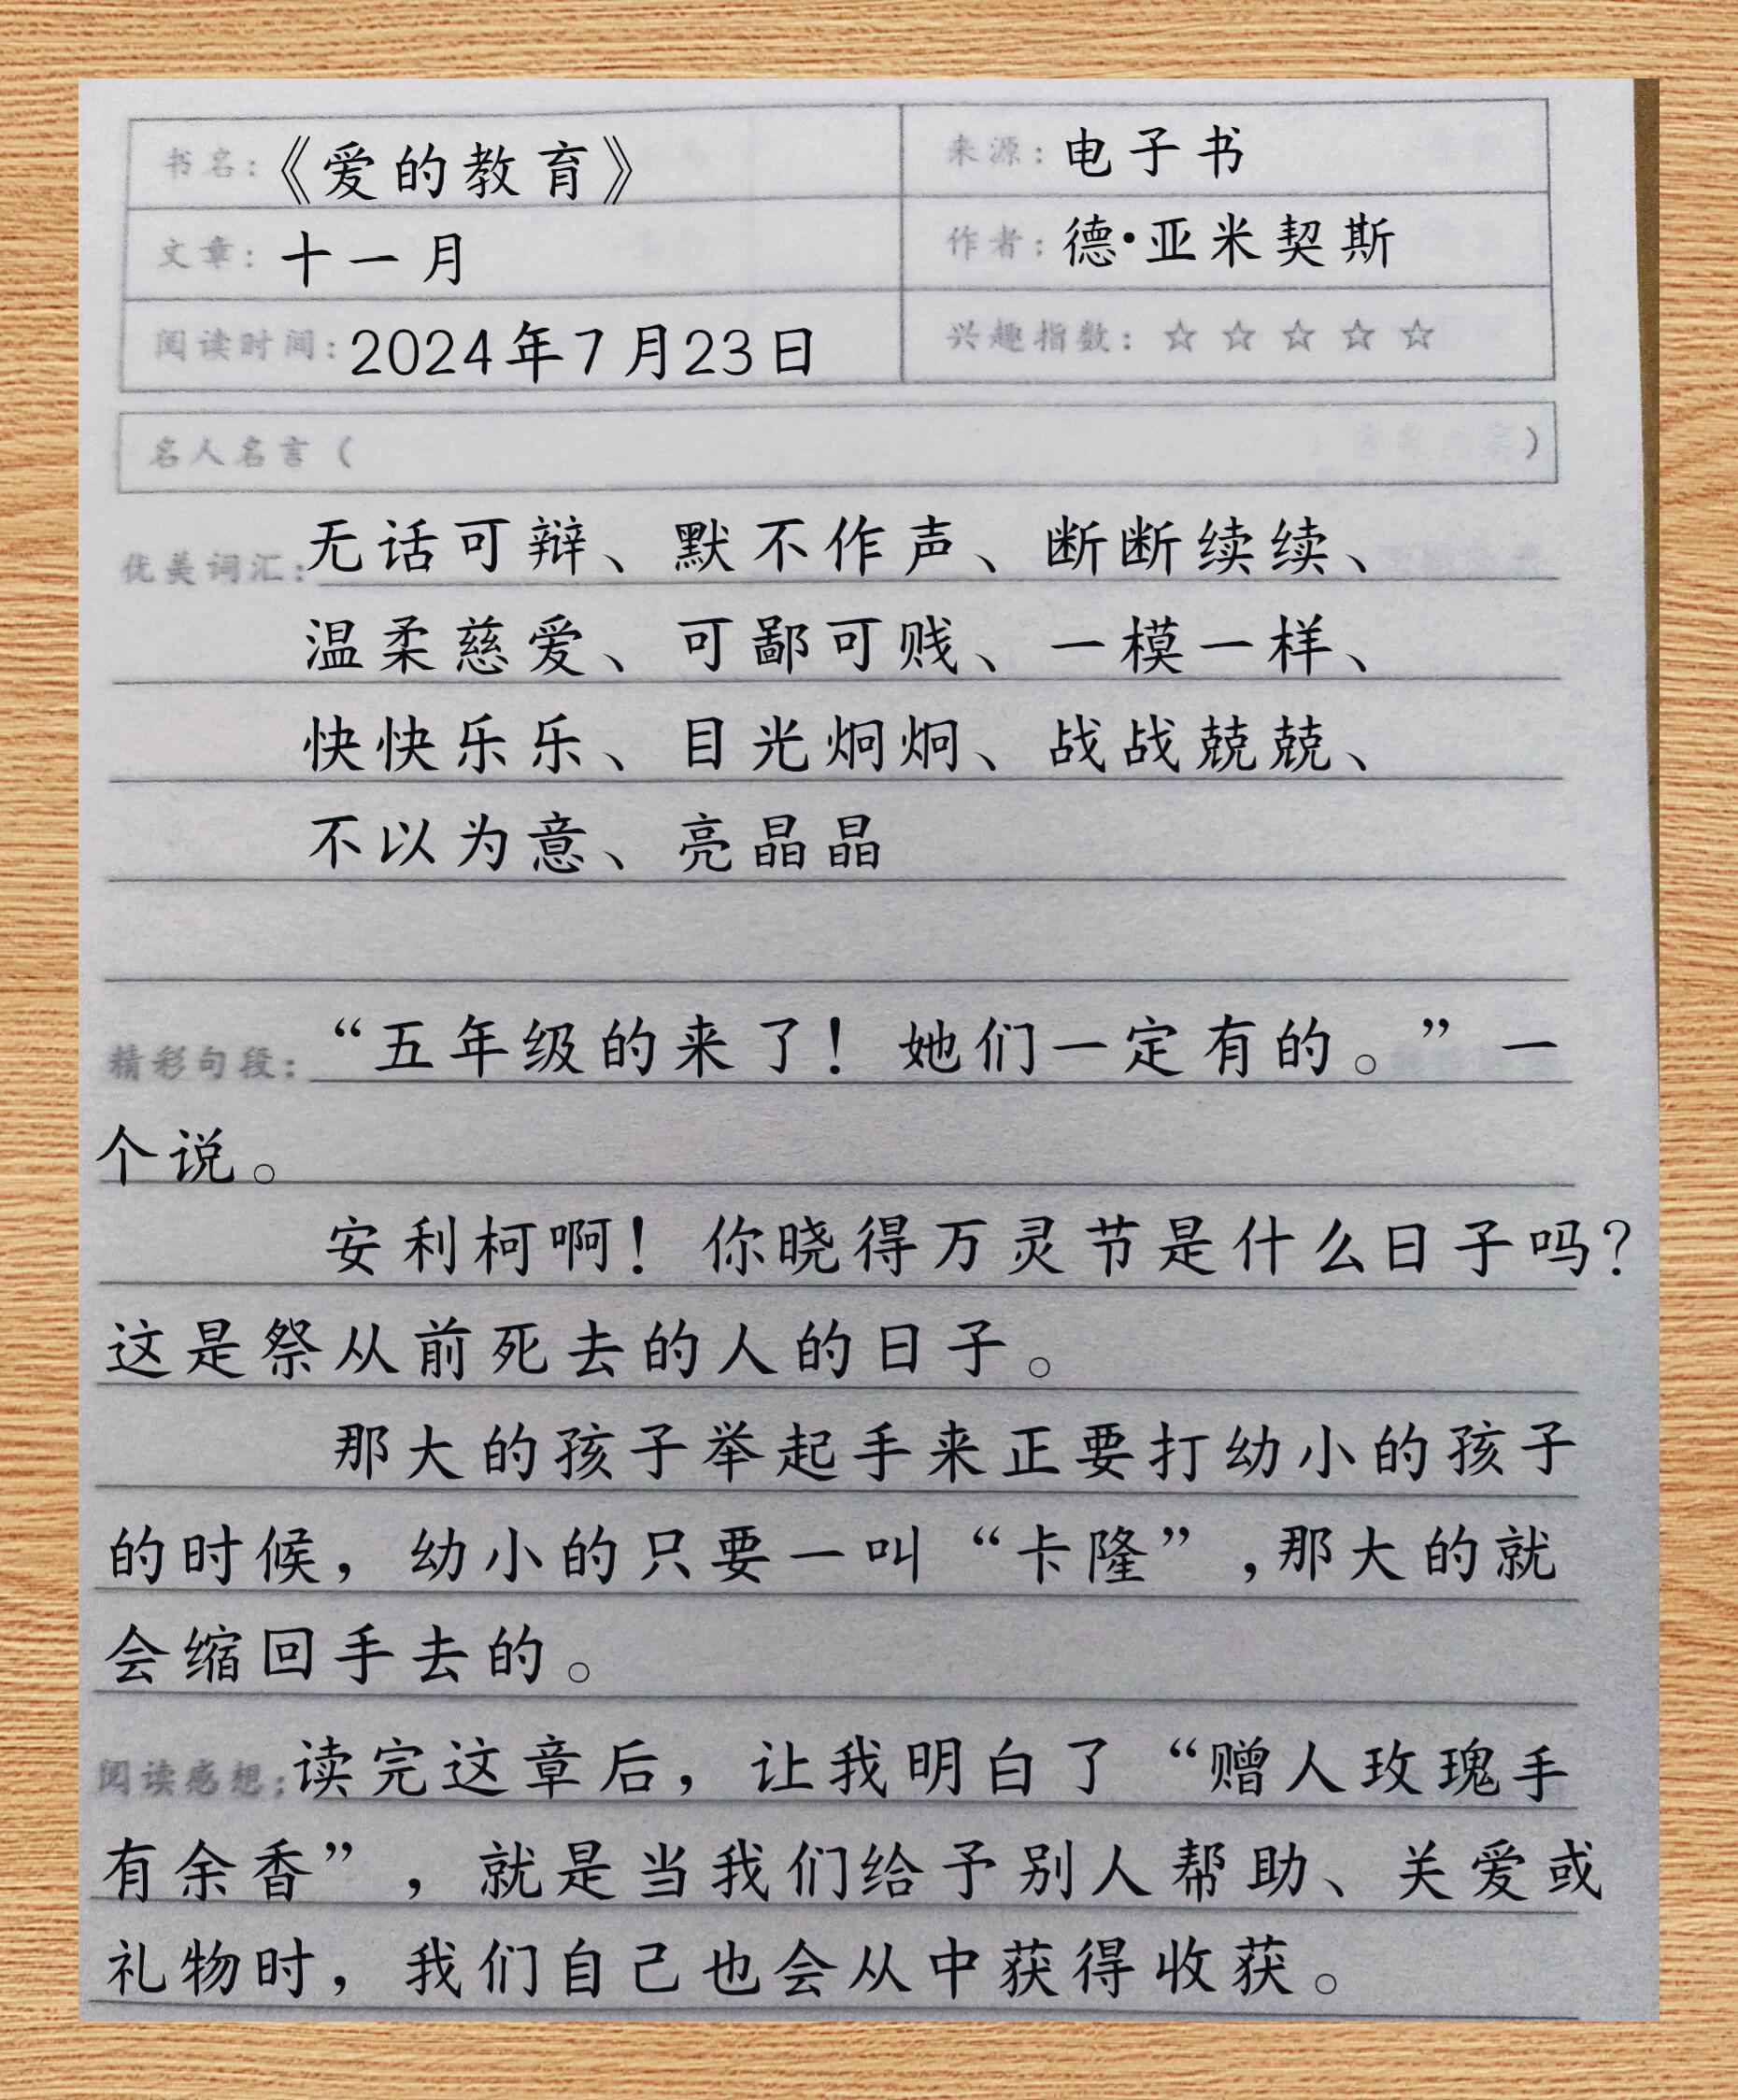 书名：《爱的教育》 来源：电子书
文章：十一月 作者：德·亚米契斯
阅读时间：2024年7月23日 兴趣指数：☆☆☆☆☆
名人名言（ ）
优美词汇：无话可辩、默不作声、断断续续、
温柔慈爱、可鄙可贱、一模一样、
快快乐乐、目光炯炯、战战兢兢、
不以为意、亮晶晶
精彩句段：“五年级的来了！她们一定有的。”一
个说。
安利柯啊！你晓得万灵节是什么日子吗？
这是祭从前死去的人的日子。
那大的孩子举起手来正要打幼小的孩子
的时候，幼小的只要一叫“卡隆”，那大的就
会缩回手去的。
阅读感想：读完这章后，让我明白了“赠人玫瑰手
有余香”，就是当我们给予别人帮助、关爱或
礼物时，我们自己也会从中获得收获。